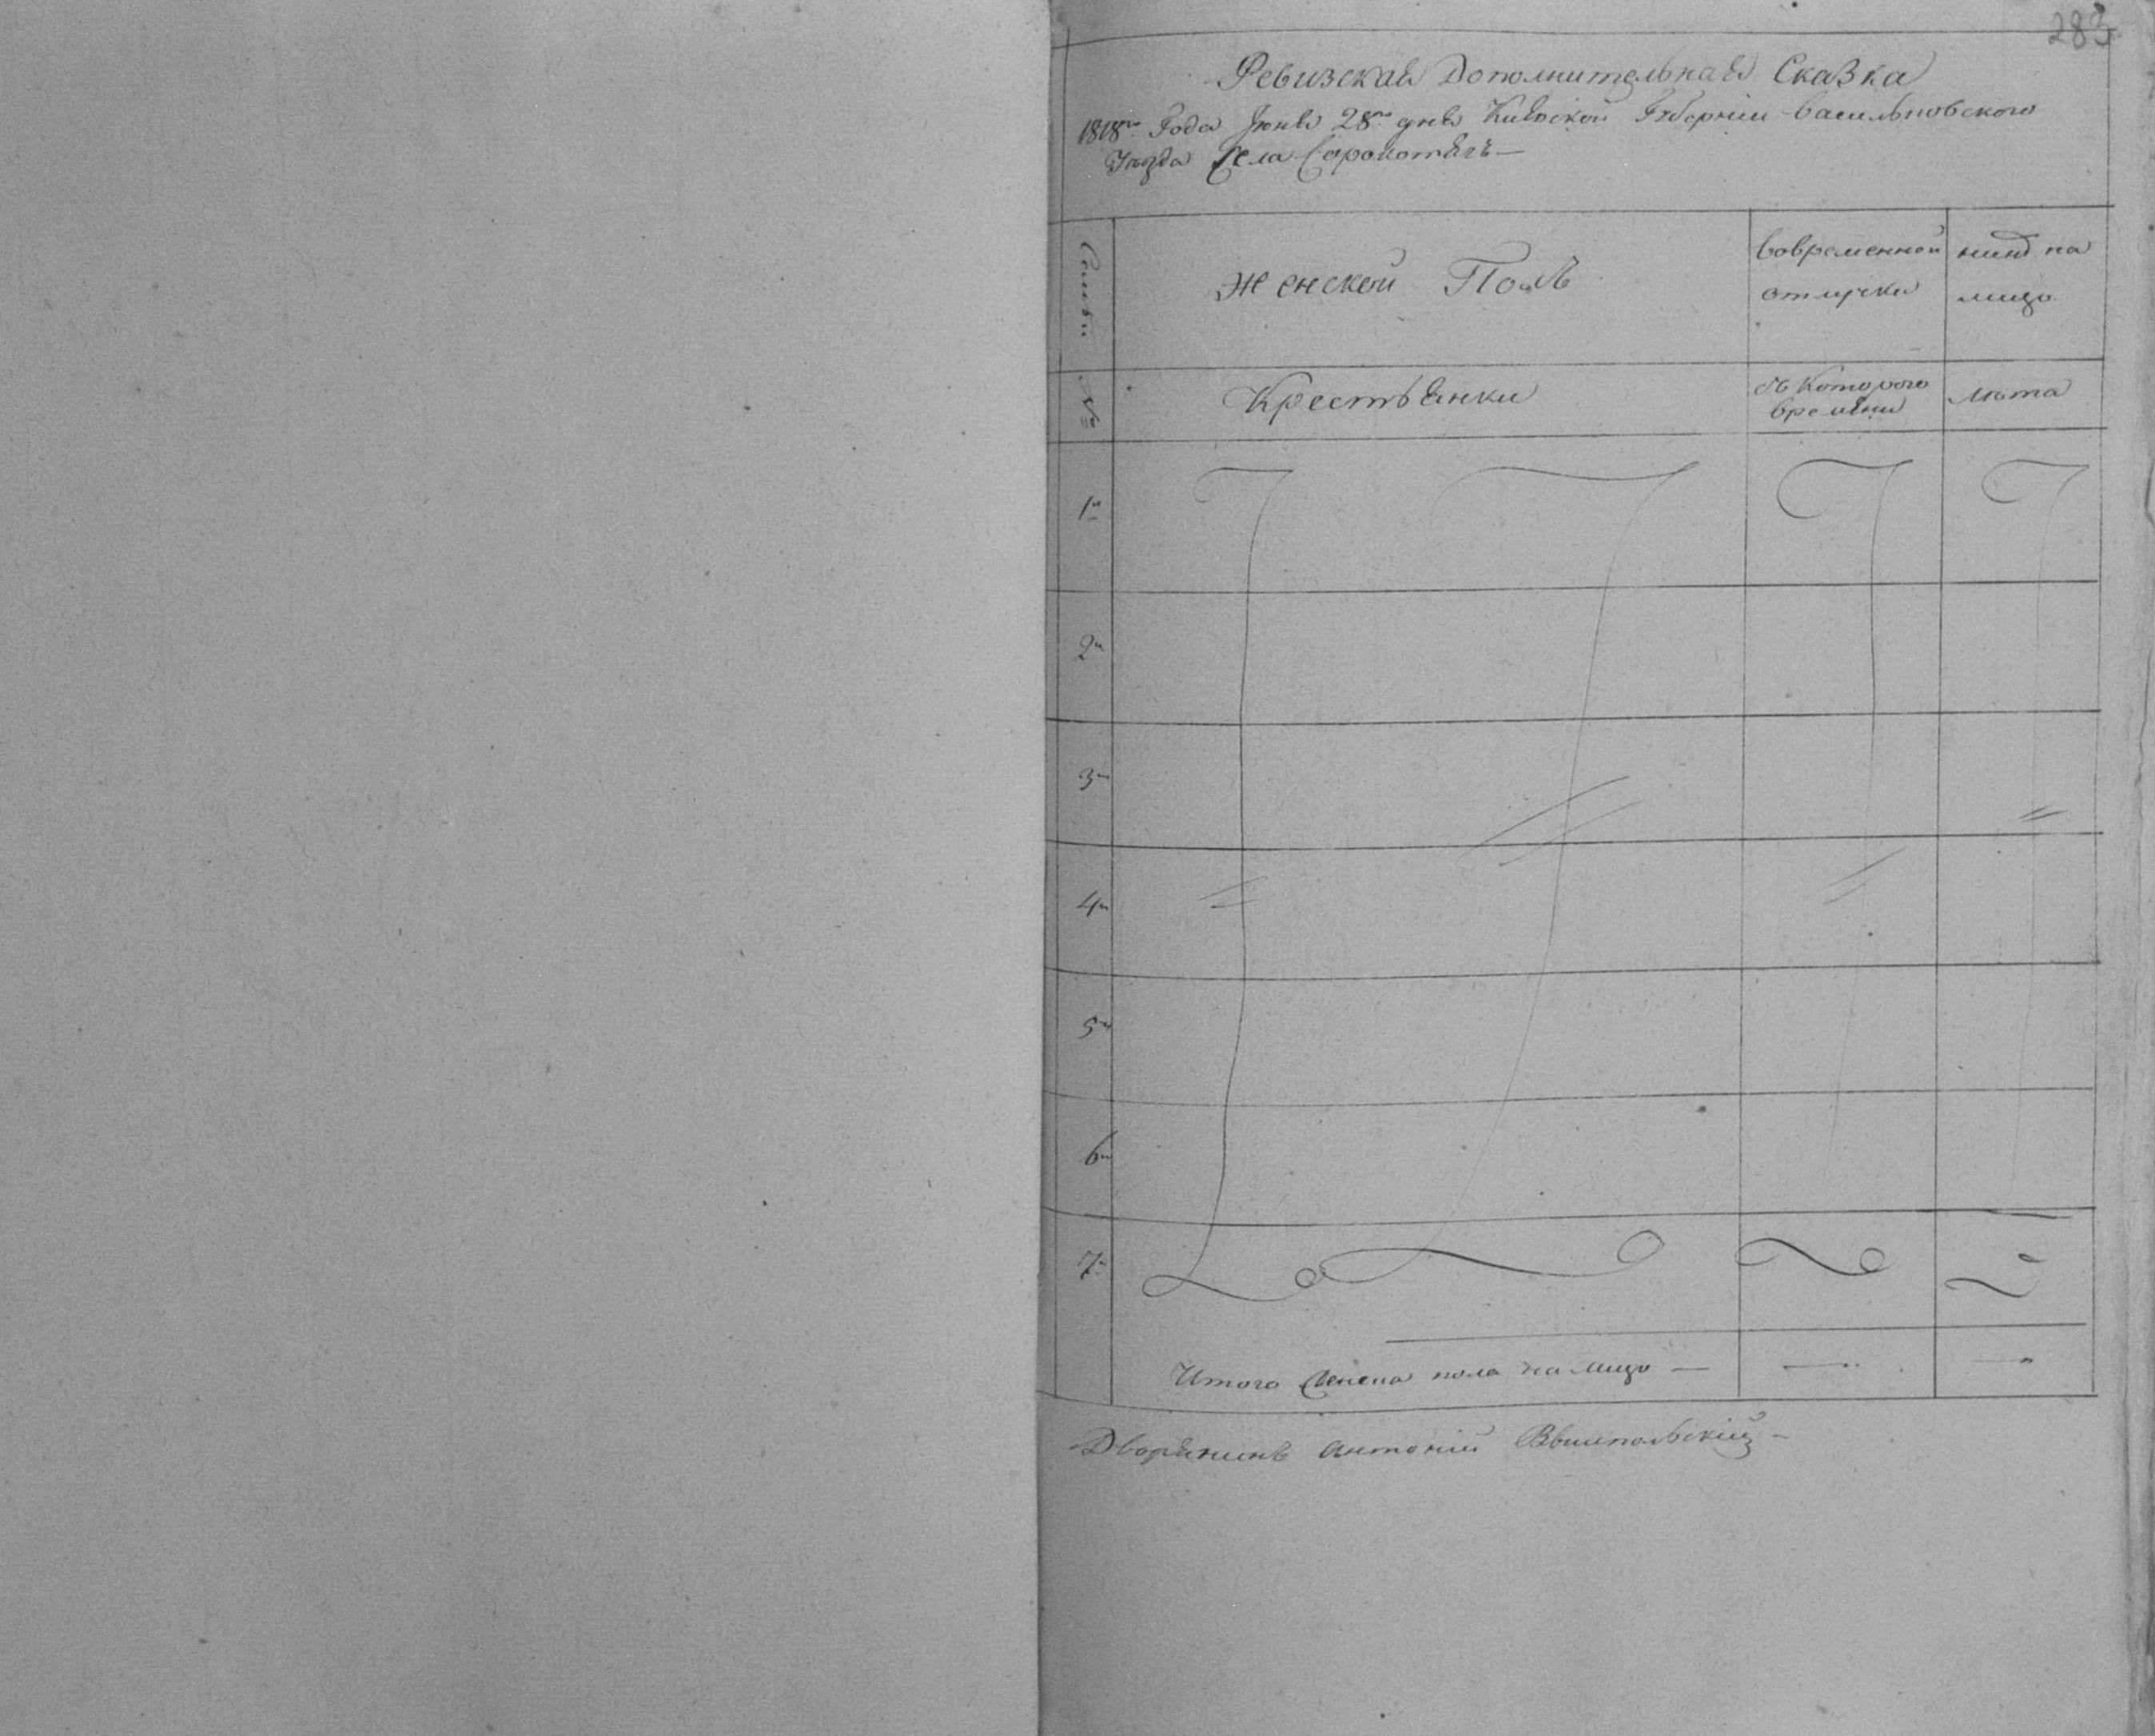 283
Ревизская Дополнительная Сказка
1818го Года Июня 28го дня Киевской Губернии Васильковского
Уезда Села Сорокотягъ —
Семьи
женской Полъ
вовременной
отлучки
ныне на
лицо
№
Крестьянки
съ Которого
времяни
лѣта
1й
2й
3й
4й
5й
6й
7й
Итого пола на лицо —
Дворянинъ Антоній